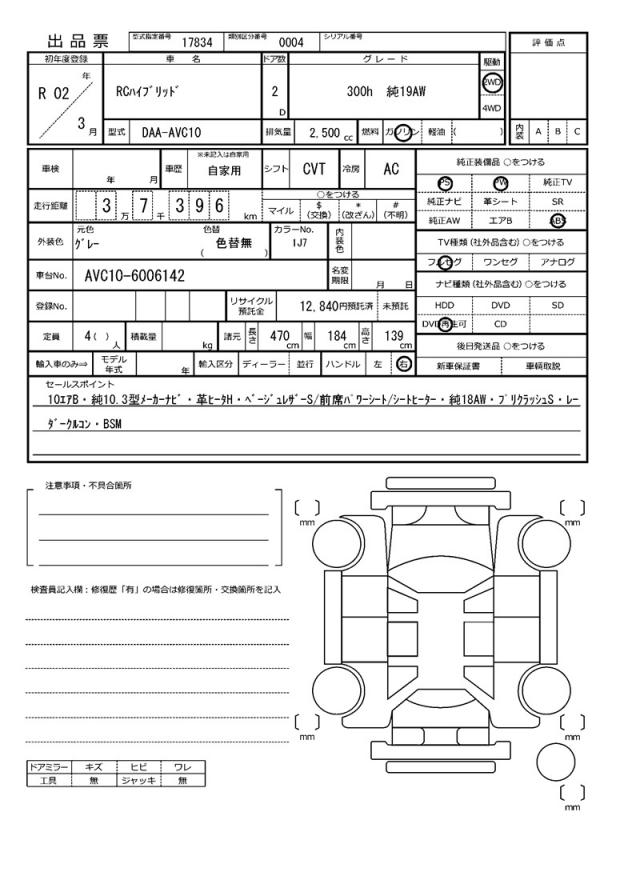 出品票
型式指定番号 17834 類別区分番号 0004 シリアル番号
評価点
初年度登録 車名 ドア数 グレード 駆動
R 02 年 3 月
RCﾊｲﾌﾞﾘｯﾄﾞ 2 D 300h 純19AW 2WD 4WD
型式 DAA-AVC10 排気量 2,500 cc 燃料 ガソリン 軽油 ( )
内装 A B C
車検 年 月 車歴 ※未記入は自家用 自家用 シフト CVT 冷房 AC
純正装備品 ○をつける
PS PW 純正TV
純正ナビ 革シート SR
純正AW エアB ABS
走行距離 3 万 7 千 3 9 6 km
○をつける
マイル $(交換) *(改ざん) #(不明)
外装色 元色 グレー 色替 色替無 ( ) カラーNo. 1J7 内装色
TV種類(社外品含む)○をつける
フルセグ ワンセグ アナログ
車台No. AVC10-6006142 名変期限 月 日
ナビ種類(社外品含む)○をつける
HDD DVD SD
DVD再生可 CD
登録No. リサイクル預託金 12,840円預託済 未預託
定員 4( ) 人 積載量 kg 諸元 長さ 470 cm 幅 184 cm 高さ 139 cm
後日発送品 ○をつける
新車保証書 車輌取説
輸入車のみ⇒ モデル年式 年 輸入区分 ディーラー 並行 ハンドル 左 右
セールスポイント
10ｴｱB・純10.3型ﾒｰｶｰﾅﾋﾞ・革ﾋｰﾀH・ﾍﾞｰｼﾞｭﾚｻﾞｰS/前席ﾊﾟﾜｰｼｰﾄ/ｼｰﾄﾋｰﾀｰ・純18AW・ﾌﾟﾘｸﾗｯｼｭS・ﾚｰ
ﾀﾞｰｸﾙｺﾝ・BSM
注意事項・不具合箇所
mm
mm
検査員記入欄：修復歴「有」の場合は修復箇所・交換箇所を記入
mm
mm
ドアミラー キズ ヒビ ワレ
工具 無 ジャッキ 無
mm